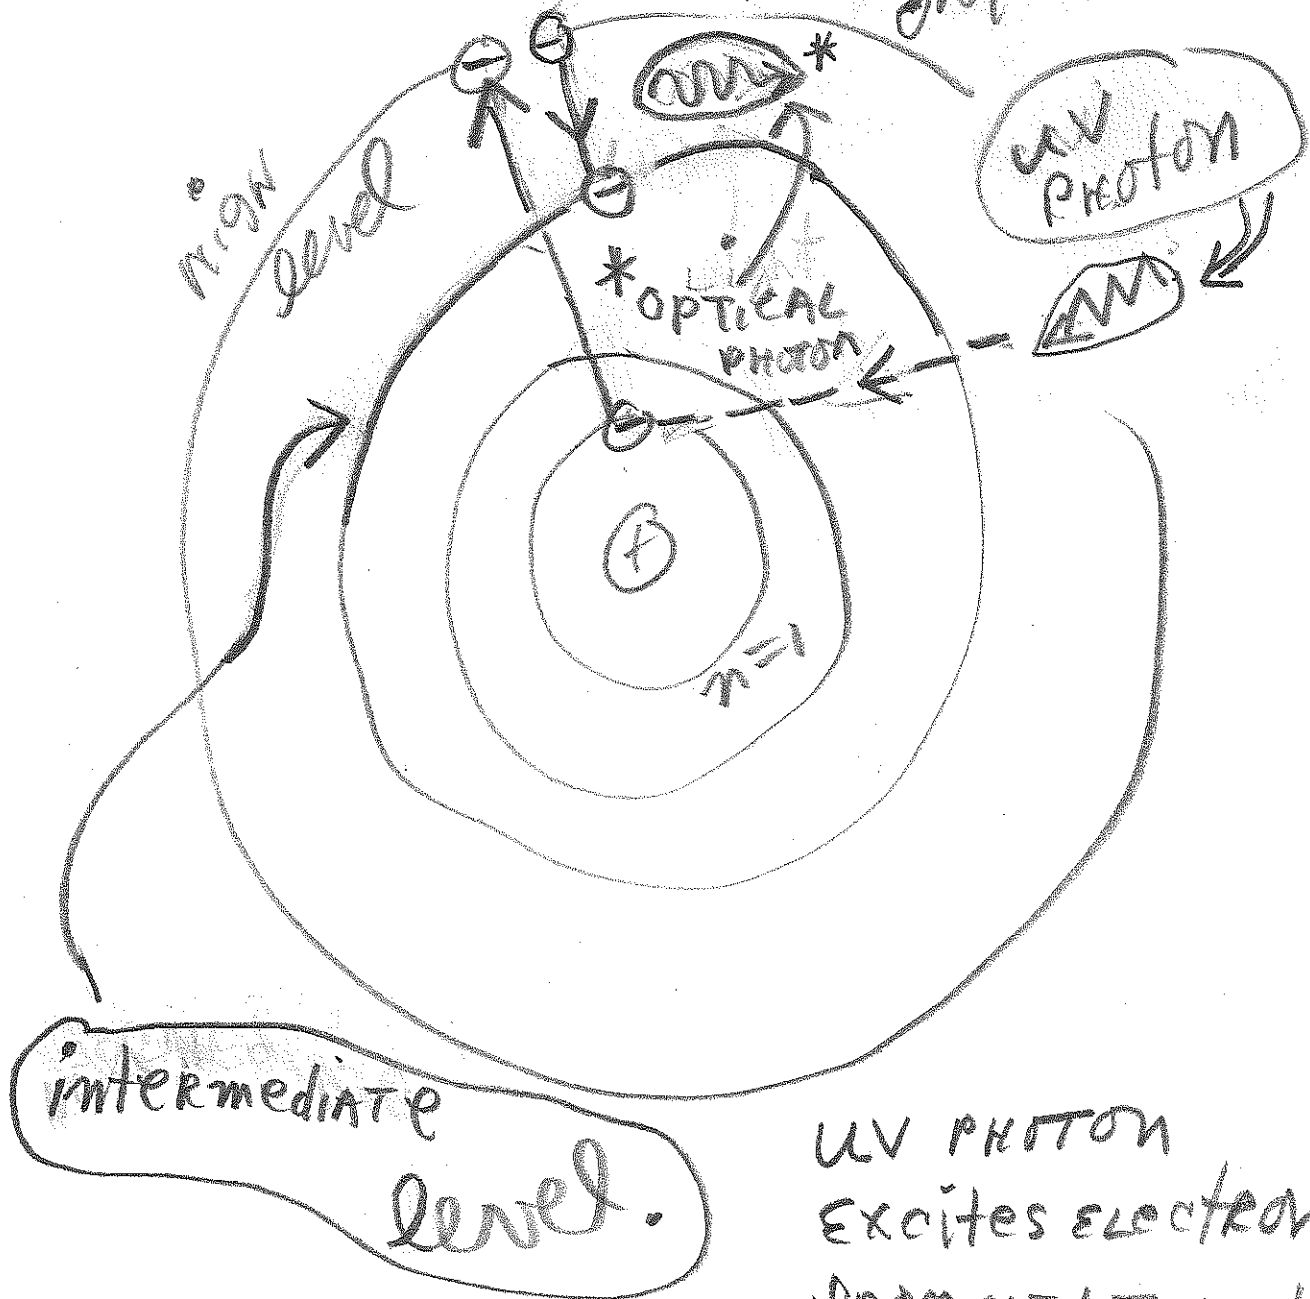 *
UV
PHOTON
level
*
OPTICAL
PHOTON
+
n=1
intermediate
level.
UV PHOTON
Excites Electron